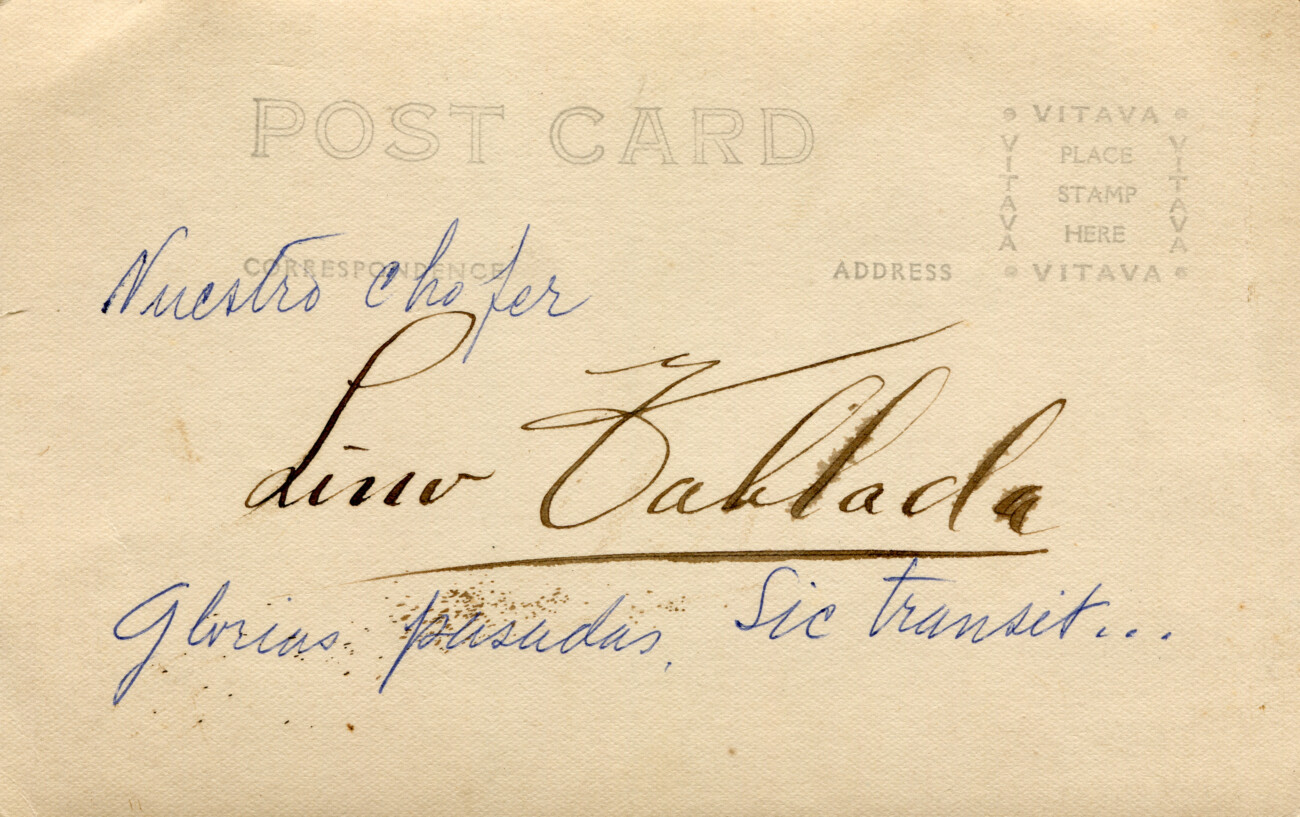 POST CARD
VITAVA
VITAVA
PLACE
STAMP
HERE
VITAVA
VITAVA
CORRESPONDENCE
ADDRESS
Nuestro chofer
Lino Tablada
Glorias pasadas. Sic transit...